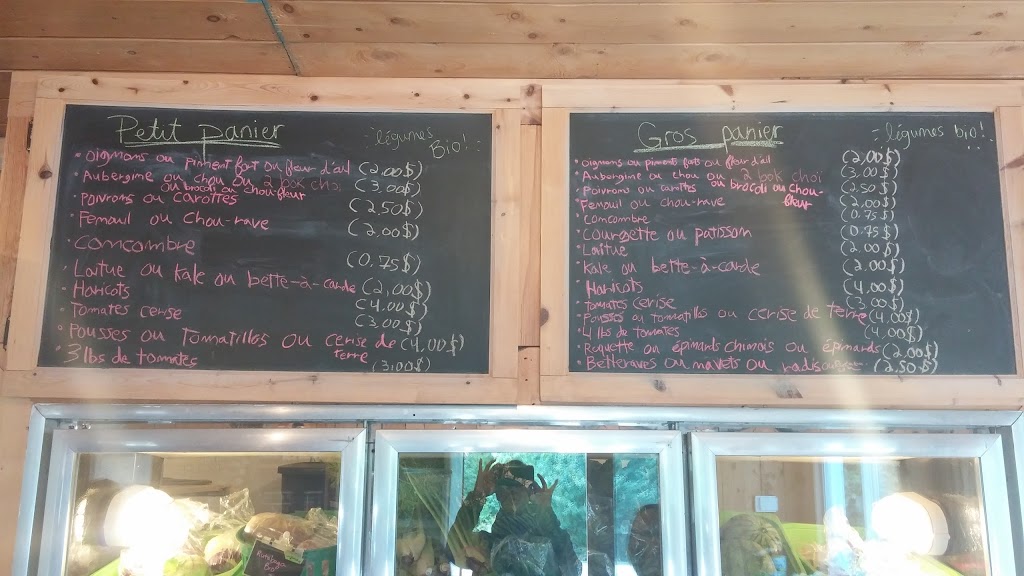 Petit panier
légumes Bio!
• Oignons ou piment fort ou fleur d'ail (2,00$)
• Aubergine ou chou ou 2 bok choi (3,00$)
ou brocoli ou chou-fleur
• Poivrons ou carottes (2,50$)
• Fenouil ou chou-rave (2,00$)
• concombre (0.75$)
• Laitue ou Kale ou bette-à-carde (2,00$)
• Haricots (4,00$)
• Tomates cerise (3,00$)
• Pousses ou Tomatillos ou cerise de terre (4,00$)
• 3 lbs de tomates (3,00$)
Gros panier
= légumes bio!
• Oignons ou piments forts ou fleur d'ail (2,00$)
• Aubergine ou chou ou 2 bok choi (3,00$)
ou brocoli ou chou-fleur
• Poivrons ou carottes (2,50$)
• Fenouil ou chou-rave (2,00$)
• Concombre (0.75$)
• Courgette ou patisson (0.75$)
• Laitue (2,00$)
• Kale ou bette-à-carde (2,00$)
• Haricots (4,00$)
• Tomates cerise (3,00$)
• Pousses ou tomatillo ou cerise de terre (4,00$)
• 4 lbs de tomates (4,00$)
• Roquette ou épinards chinois ou épinards (2,00$)
• Betteraves ou navets ou radis (2.50$)